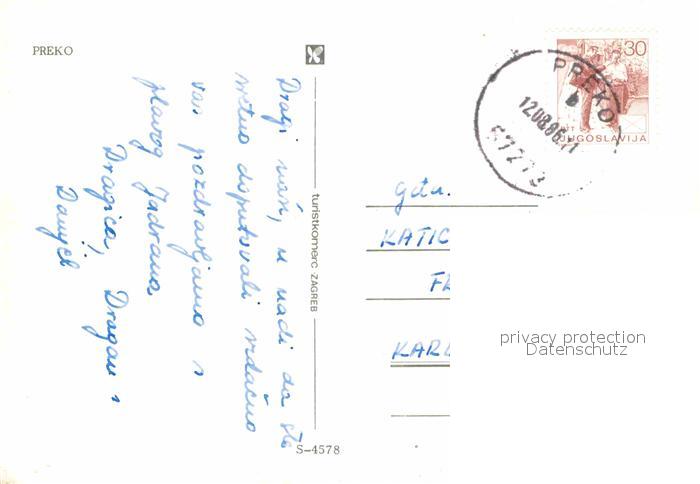 PREKO
Dragi naši, u nadi da ste
sretno doputovali srdačno
vas pozdravljamo s
plavog Jadrana
Dragica, Dragan i
turistkomerc ZAGREB
S-4578
30
PTT
JUGOSLAVIJA
PREKO
b
12.08.86-11
57273
Gđa.
KATIC
KARL
privacy protection
Datenschutz